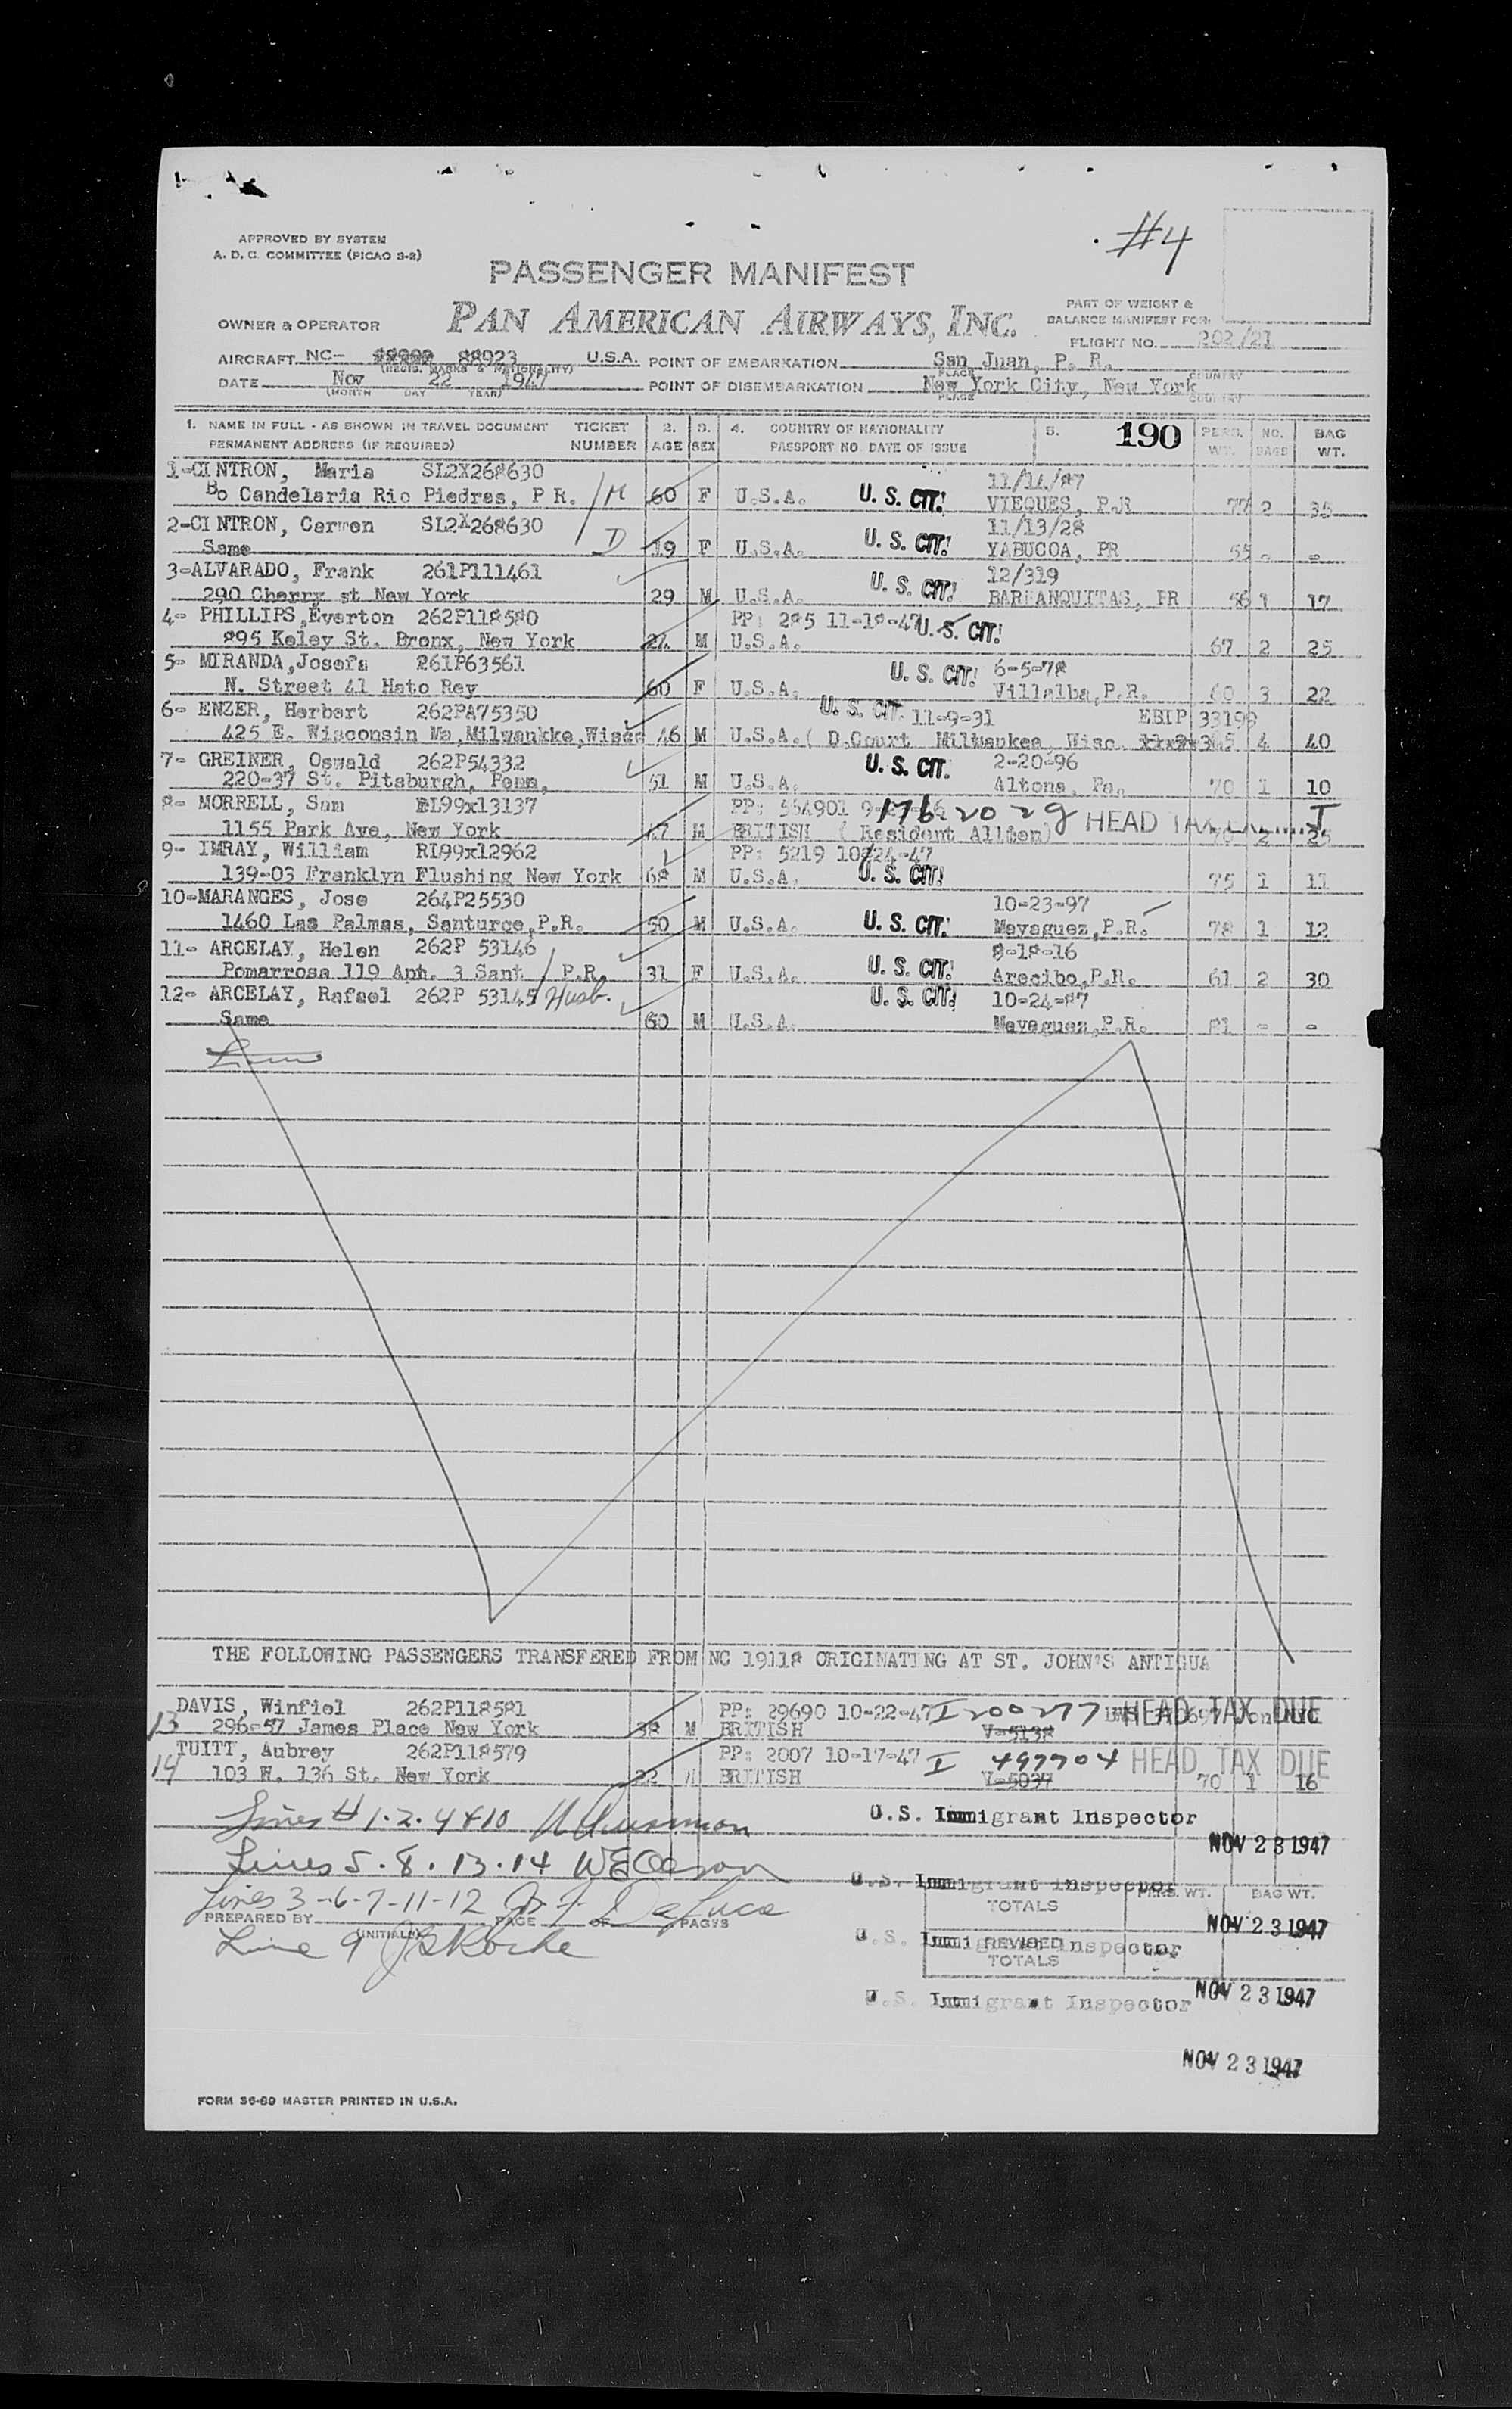 #4
APPROVED BY SYSTEM
A. D. C. COMMITTEE (PICAO 3-2)
PASSENGER MANIFEST
PAN AMERICAN AIRWAYS, INC.
OWNER & OPERATOR
PART OF WEIGHT &
BALANCE MANIFEST FOR
FLIGHT NO. 202/21
AIRCRAFT NC- 88923 U.S.A. POINT OF EMBARKATION San Juan, P. R.
(REGIS. MARKS & NATIONALITY) PLACE COUNTRY
DATE Nov 22 1947 POINT OF DISEMBARKATION New York City, New York
(MONTH DAY YEAR) PLACE COUNTRY
1. NAME IN FULL - AS SHOWN IN TRAVEL DOCUMENT TICKET 2. 3. 4. COUNTRY OF NATIONALITY 5. 190 PERS. NO. BAG
PERMANENT ADDRESS (IF REQUIRED) NUMBER AGE SEX PASSPORT NO. DATE OF ISSUE WT. BAGS WT.
1-CINTRON, Maria SL2X268630 11/14/87
Bo Candelaria Rio Piedras, P R. M 60 F U.S.A. U. S. CIT. VIEQUES, P.R 77 2 35
2-CINTRON, Carmen SL2X268630 11/13/28
Same D 19 F U.S.A. U. S. CIT. YABUCOA, PR 55 - -
3-ALVARADO, Frank 261P111461 12/319
290 Cherry st New York 29 M U.S.A. U. S. CIT. BARRANQUITAS, PR 56 1 17
4- PHILLIPS, Everton 262P118580 PP: 285 11-18-47 U. S. CIT.
895 Keley St. Bronx, New York 24 M U.S.A. 67 2 25
5- MIRANDA, Josefa 261P63561 U. S. CIT. 6-5-78
N. Street 41 Hato Rey 60 F U.S.A. Villalba, P.R. 60 3 22
6- ENZER, Herbert 262PA75350 U. S. CIT. 11-9-31 EBIP 33199
425 E. Wisconsin Wa, Milwaukke, Wisc 46 M U.S.A. ( D.Court Milwaukee, Wisc. 4 40
7- GREINER, Oswald 262P54332 U. S. CIT. 2-20-96
220-37 St. Pitsburgh, Penn, 51 M U.S.A. Altona, Pa. 70 1 10
8- MORRELL, Sam RL99x13137 PP: 564901 1762029 HEAD TAX I
1155 Park Ave, New York 47 M BRITISH ( Resident Allien) 70 2 25
9- IMRAY, William RL99x12962 PP: 5219 10/24-47
139-03 Franklyn Flushing New York 68 M U.S.A. U. S. CIT. 75 1 11
10-MARANGES, Jose 264P25530 10-23-97
1460 Las Palmas, Santurce, P.R. 50 M U.S.A. U. S. CIT. Mayaguez, P.R. 78 1 12
11- ARCELAY, Helen 262P 53146 8-18-16
Pomarrosa 119 Aph. 3 Sant P.R. 31 F U.S.A. U. S. CIT. Arecibo, P.R. 61 2 30
12- ARCELAY, Rafael 262P 53145 Husb. U. S. CIT. 10-24-87
Same 60 M U.S.A. Mayaguez, P.R. 81 - -
THE FOLLOWING PASSENGERS TRANSFERED FROM NC 19118 ORIGINATING AT ST. JOHN'S ANTIGUA
DAVIS, Winfiel 262P118581 PP: 29690 10-22-47 I 200277 HEAD TAX DUE
13 296-57 James Place New York 38 M BRITISH V-5138
TUITT, Aubrey 262P118579 PP: 2007 10-17-47 I 497704 HEAD TAX DUE
14 103 W. 136 St. New York 22 M BRITISH V-5037 70 1 16
Lines # 1.2.4 & 10
U.S. Immigrant Inspector
NOV 23 1947
Lines 5.8.13.14
U.S. Immigrant Inspector
Lines 3-6-7-11-12 DeLuca
PERS. WT. BAG WT.
TOTALS
PREPARED BY PAGE OF PAGES
NOV 23 1947
(INITIALS)
Line 9
U.S. Immigrant Inspector
REVISED
TOTALS
U.S. Immigrant Inspector
NOV 23 1947
NOV 23 1947
FORM 36-69 MASTER PRINTED IN U.S.A.